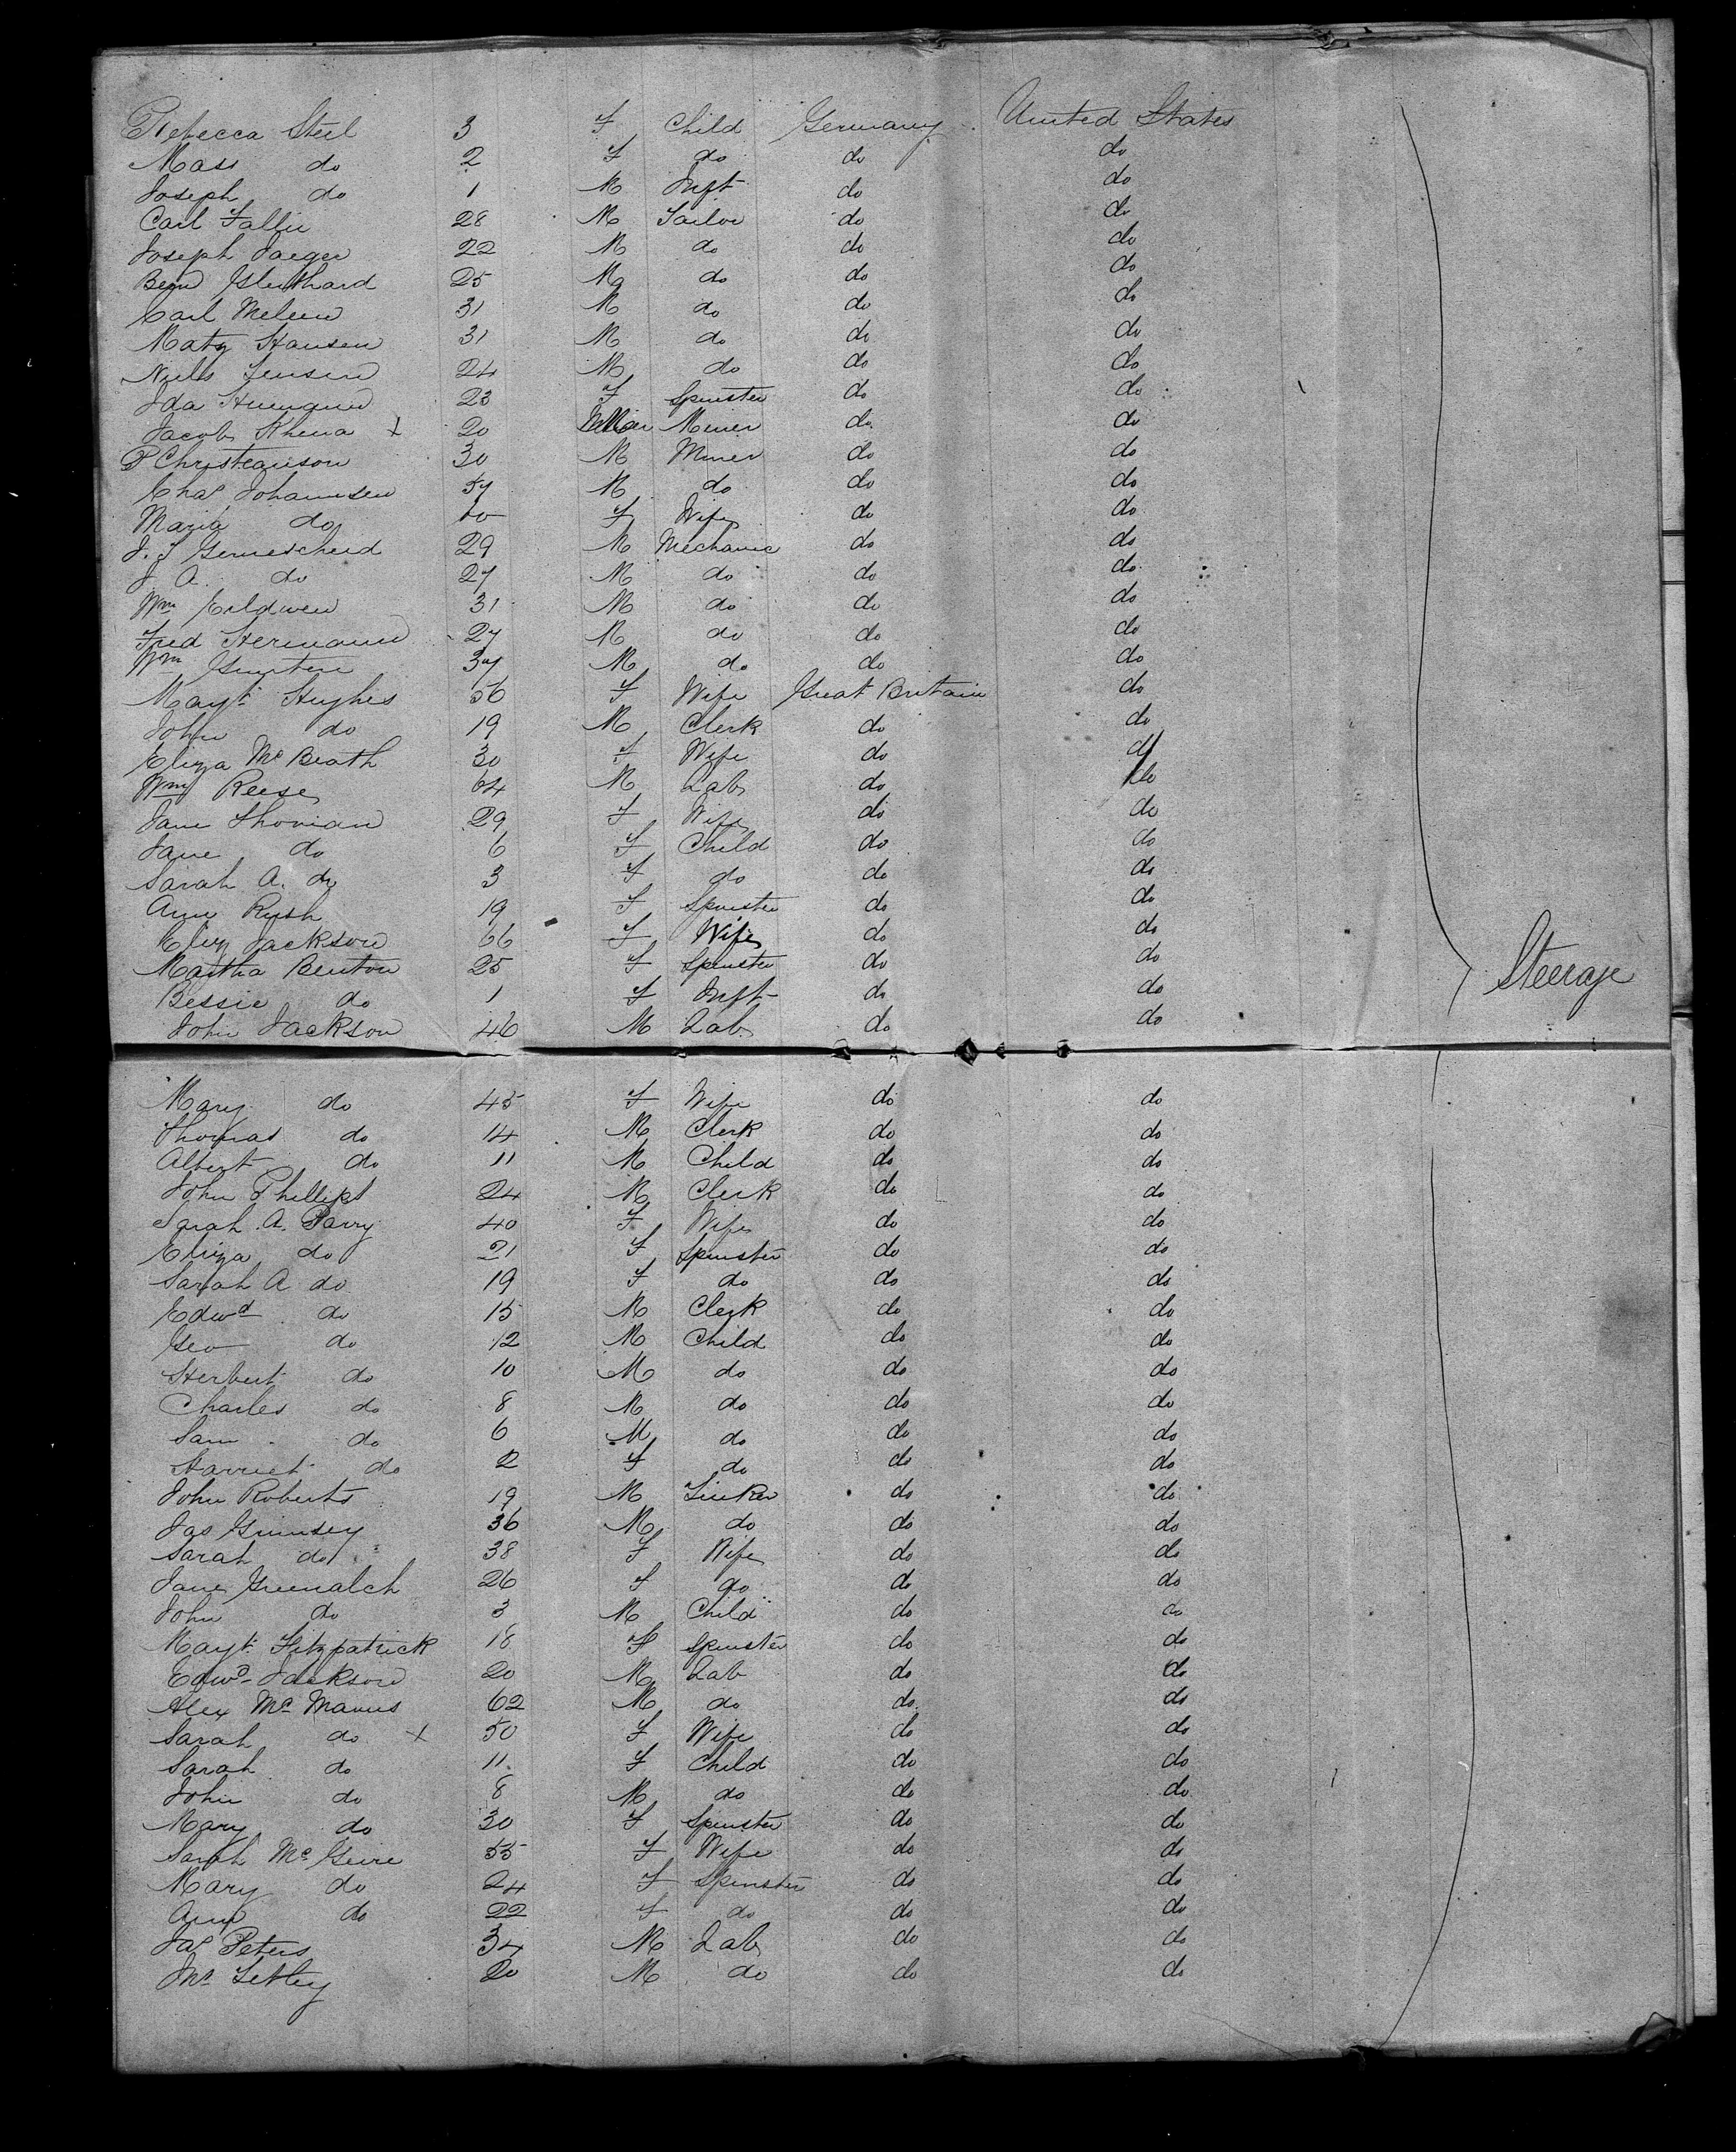 Rebecca Steel 3 F Child Germany United States
Mass do 2 F do do do
Joseph do 1 M Inft do do
Carl Fallier 28 M Tailor do do
Joseph Jaeger 22 M do do do
25 M do do do
Carl 31 M do do do
Maty Hansen 31 M do do do
Niels Jensen 24 M do do do
Ida 23 F Spinster do do
Jacob Khena x 20 Miner do do
P Christeanson 30 M Miner do do
Chas Johannsen 57 M do do do
Maria do F Wife do do
J. J Gemescheid 29 M Mechanic do do
J A. do 27 M do do do
Wm 31 M do do do
Fred Hermann 27 M do do do
Wm 37 M do do do
Magt Hughes 56 F Wife Great Britain do
John do 19 M Clerk do do
Eliza Mc Beath 30 F Wife do do
Wm Reese 64 M Lab do do
Jane 29 F Wife do do
Jane do 6 F Child do do
Sarah A. do 3 F do do do
Ann Rush 19 F Spinster do do
Eliz Jackson 66 F Wife do do
Martha Benton 25 F Spinster do do Steerage
Bessie do 1 F Inft do do
John Jackson 46 M Lab do do
Mary do 45 F Wife do do
Thomas do 14 M Clerk do do
Albert do 11 M Child do do
John Phillips 24 M Clerk do do
Sarah A. Parry 40 F Wife do do
Eliza do 21 F Spinster do do
Sarah A do 19 F do do do
Edwd do 15 M Clerk do do
Geo do 12 M Child do do
Herbert do 10 M do do do
Charles do 8 M do do do
Sam do 6 M do do do
Harriet do 2 F do do do
John Roberts 19 M do do
Jas Grimsey 36 M do do do
Sarah do 38 F Wife do do
Jane Greenalch 26 F do do do
John do 3 M Child do do
Magt Fitzpatrick 18 F Spinster do do
Edwd Jackson 20 M Lab do do
Alex Mc Manus 62 M do do do
Sarah do x 50 F Wife do do
Sarah do 11 F Child do do
John do 8 M do do do
Mary do 30 F Spinster do do
Sarah Mc Guire 55 F Wife do do
Mary do 24 F Spinster do do
Ann do 22 F do do do
Jas Peters 34 M Lab do do
Jno 20 M do do do